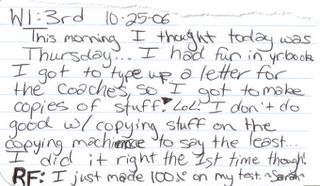 W1:3rd 10-25-06
This morning I thought today was
Thursday... I had fun in yrbook
I got to type up a letter for
the coaches, so I got to make
copies of stuff. Lol! I don't do
good w/ copying stuff on the
copying machine to say the least...
I did it right the 1st time though!
RF: I just made 100% on my test. ~Sarah~